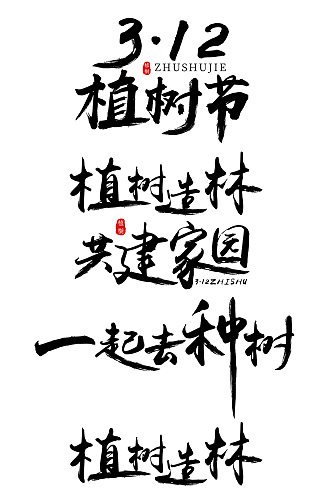 3·12
ZHUSHUJIE
植树节
植树造林
共建家园
3·12ZHISHU
一起去种树
植树造林